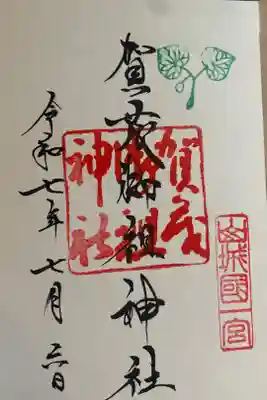 山城國一宮
賀茂御祖神社
賀茂御祖神社
令和七年七月六日